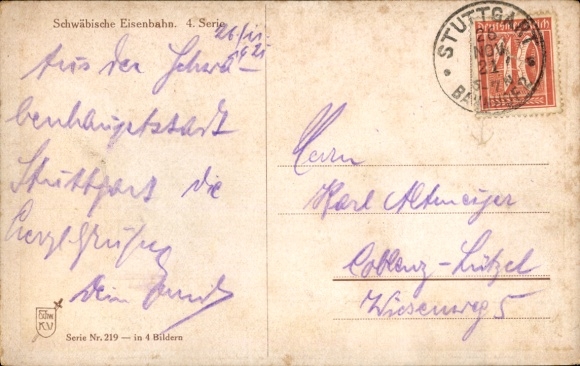 Schwäbische Eisenbahn. 4. Serie
26/11 1921
Aus der Schwa-
benhauptstadt
Stuttgart die
herzl. Grüße
Dein
Serie Nr. 219 — in 4 Bildern
STUTTGART
26
NOV
21
Deutsches Reich
Herrn
Karl Altmeyer
Coblenz-Lützel
Wiesenweg 5